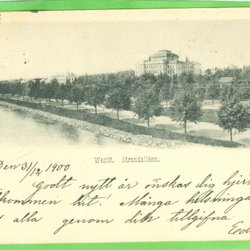 Werlö. Strandallëen.
Den 31/12 1900
Godt nytt år önskas dig hjer
kommen hit. Många helsningar
alla genom din tillgifna